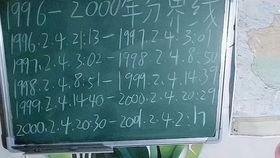 1996-2000年分界线
1996.2.4.21:13-1997.2.4.3:01
1997.2.4.3:02-1998.2.4.8:50
1998.2.4.8:51-1999.2.4.14:39
1999.2.4.14:40-2000.2.4.20:29
2000.2.4.20:30-2001.2.4.2:1